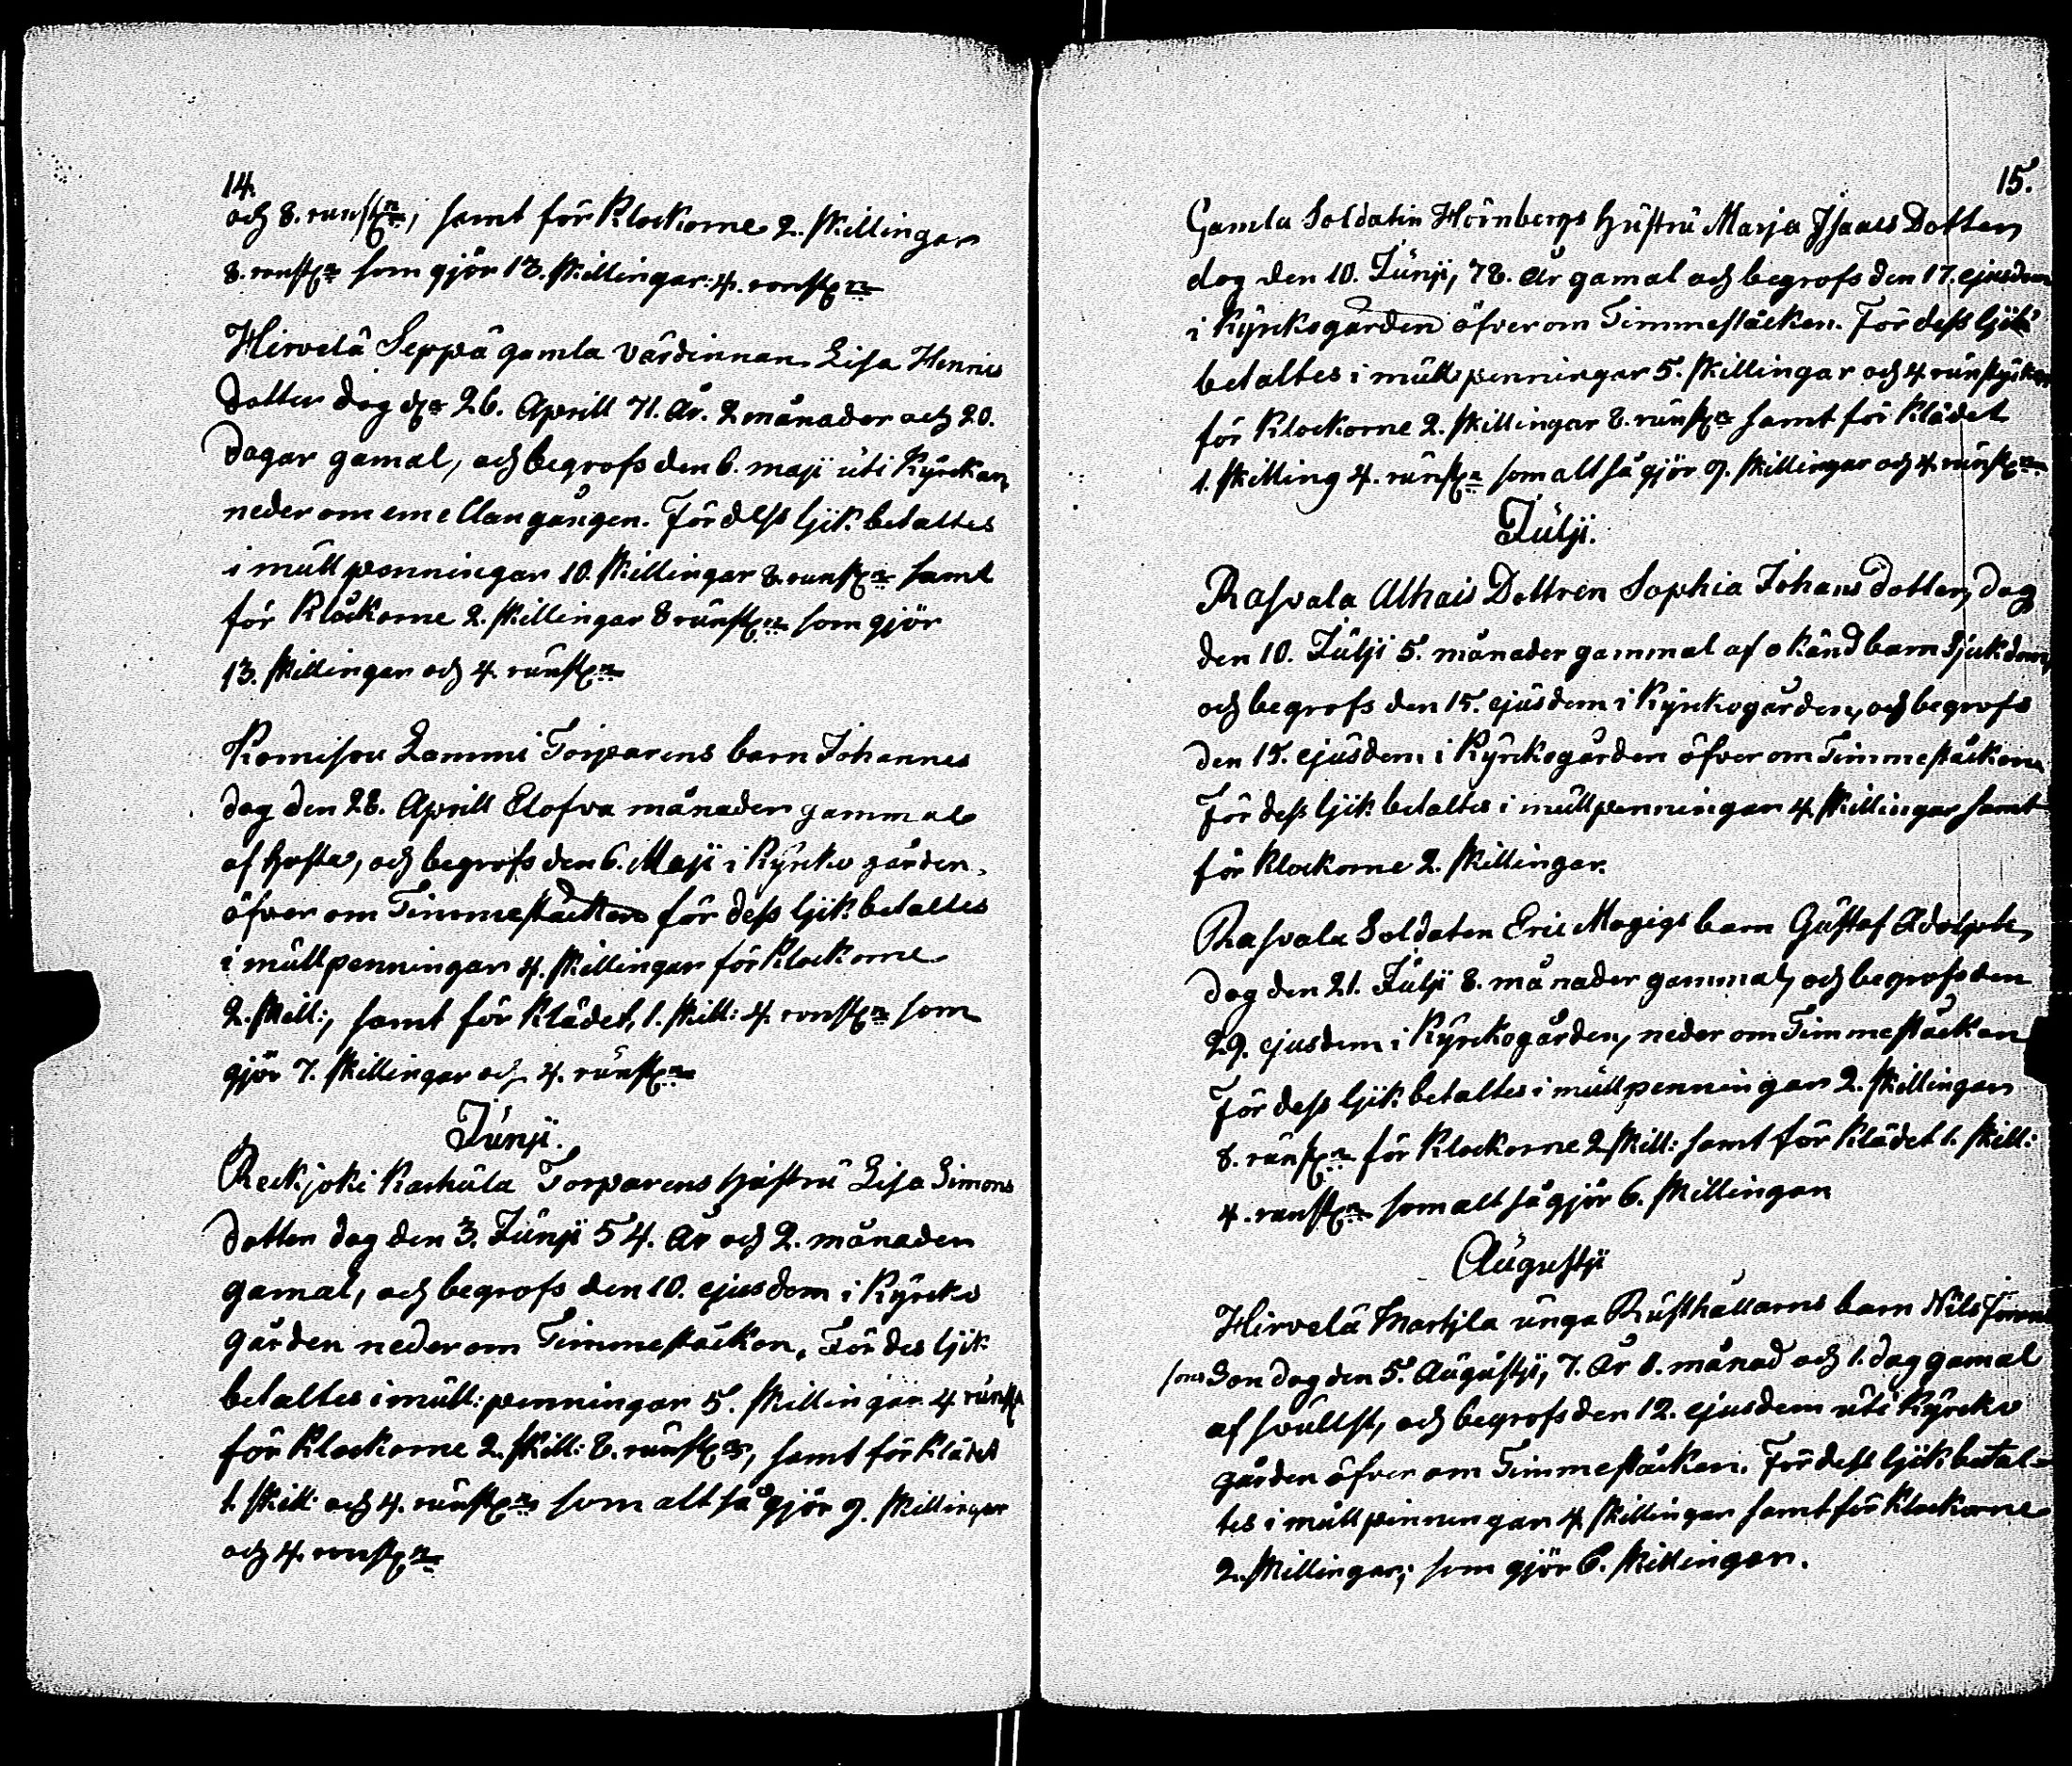 14.
och 8. runst:n, samt för Klockorne 2. skillingar
8. runst:n som gjör 13. skillingar. 4. runst:n
Hirvelä Seppä gamla värdinnan Lisa Henrics
dotter dog d:n 26. Aprill 71. År. 2 månader och 20.
dagar gamal, och begrofs den 6. maji uti Kyrckan
nederom emellangången. För dess ljik betaltes
i mullpenningar 10. skillingar 8. runst:n samt
för Klåckorne 2. skillingar 8 runst:n som gjör
13. skillingar och 4. runst:n
Lammi Torparens barn Johannes
dog den 28. Aprill Elofva månader gammal
af hosta, och begrofs den 6. Maji i Kyrcko gården,
öfver om Timmestäcken för dess ljik betaltes
i mullpenningar 4. skillingar för Klockorne
2. skill:, samt för Klädet, 1. skill: 4. runst:n som
gjör 7. skillingar och 4. runst:n
Junji.
Reckjoki Karhula Torparens hustru Lisa Simons
dotter dog den 3. Junji 54. År och 2. månader
gamal, och begrofs den 10. ejusdem i Kyrcko
gården nederom Timmestäcken, För des ljik
betaltes i mull:penningar 5. skillingar 4 runst
för Klockorne 2. skill: 8. runst:r, samt för Klädet
1. skill: och 4. runst:n som alt så gjör 9. skillingar
och 4. runst:n
15.
Gamla Soldatin Hörnbergs hustru Marja Jsaacs Dotter,
dog den 10. Junji, 78. År gamal och begrofs den 17. ejusdem
i Kyrckogården öfver om Timmestäcken. För dess ljik
betaltes i mullpenningar 5. skillingar och 4 runstycken
för Klockorne 2. skillingar 8. runst:n samt för Klädet
1. skilling 4. runst:n som alt så gjör 9. skillingar och 4. runst:n
Julji.
Rasvala Alhais Dottren Sophia Johans dotter, dog
den 10. Julji 5. månader gammal af okänd barn sjukdom,
och begrofs den 15. ejusdem i Kyrckogården, och begrofs
den 15. ejusdem i Kyrckogården öfver om Timmestäcken
För dess ljik betaltes i mullpenningar 4. skillingar samt
för Klockorne 2. skillingar.
Rasvala Soldaten Eric Magigs barn Gustaf Adolph,
dog den 21. Julji 8. månader gammal, och begrofs den
29. ejusdem i Kyrckogården, neder om Timmestäcken
För dess ljik betaltes i mullpenningar 2. skillingar
8. runst:n för Klockorne 2 skill: samt för Klädet 1. skill:
4. runst:n som alt så gjör 6. skillingar
Augustji
Hirvelä Martjla unga Rusthållarns barn Nils
son dog den 5. Augustji, 7. År 8. månad och 1. dag gamal
af svullst, och begrofs den 12. ejusdem uti Kyrcko
gården öfver om Timmestäcken. För dess ljik betal-
tes i mullpenningar 4 skillingar samt för Klockorne
2. skillingar; som gjör 6. skillingar.